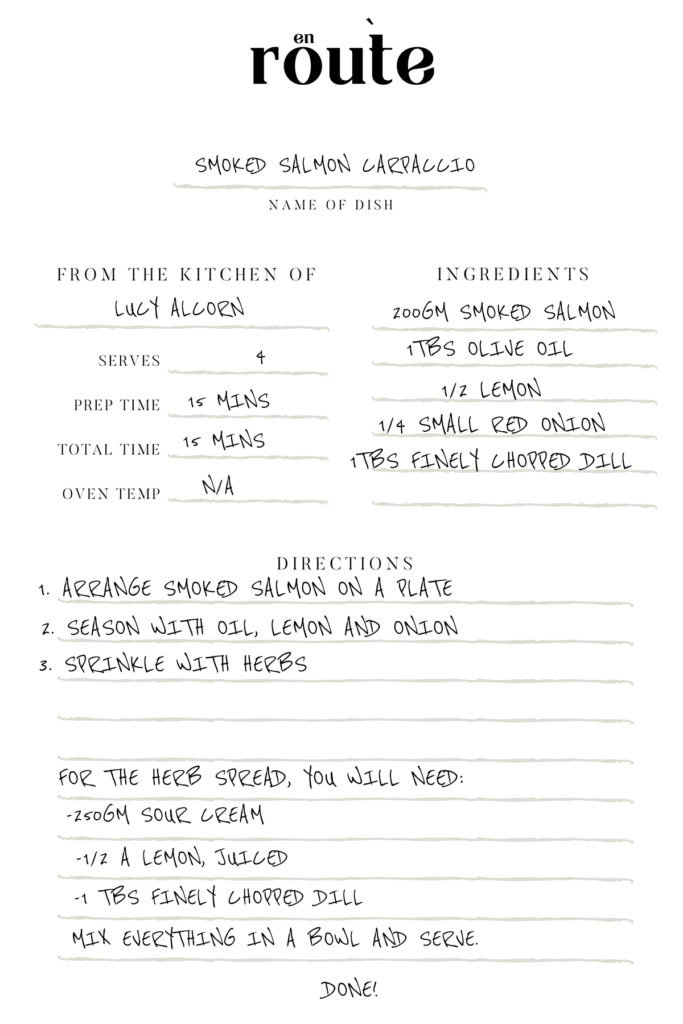 en
route
SMOKED SALMON CARPACCIO
NAME OF DISH
FROM THE KITCHEN OF
LUCY ALCORN
SERVES 4
PREP TIME 15 MINS
TOTAL TIME 15 MINS
OVEN TEMP N/A
INGREDIENTS
200GM SMOKED SALMON
1TBS OLIVE OIL
1/2 LEMON
1/4 SMALL RED ONION
1TBS FINELY CHOPPED DILL
DIRECTIONS
1. ARRANGE SMOKED SALMON ON A PLATE
2. SEASON WITH OIL, LEMON AND ONION
3. SPRINKLE WITH HERBS
FOR THE HERB SPREAD, YOU WILL NEED:
-250GM SOUR CREAM
-1/2 A LEMON, JUICED
-1 TBS FINELY CHOPPED DILL
MIX EVERYTHING IN A BOWL AND SERVE.
DONE!